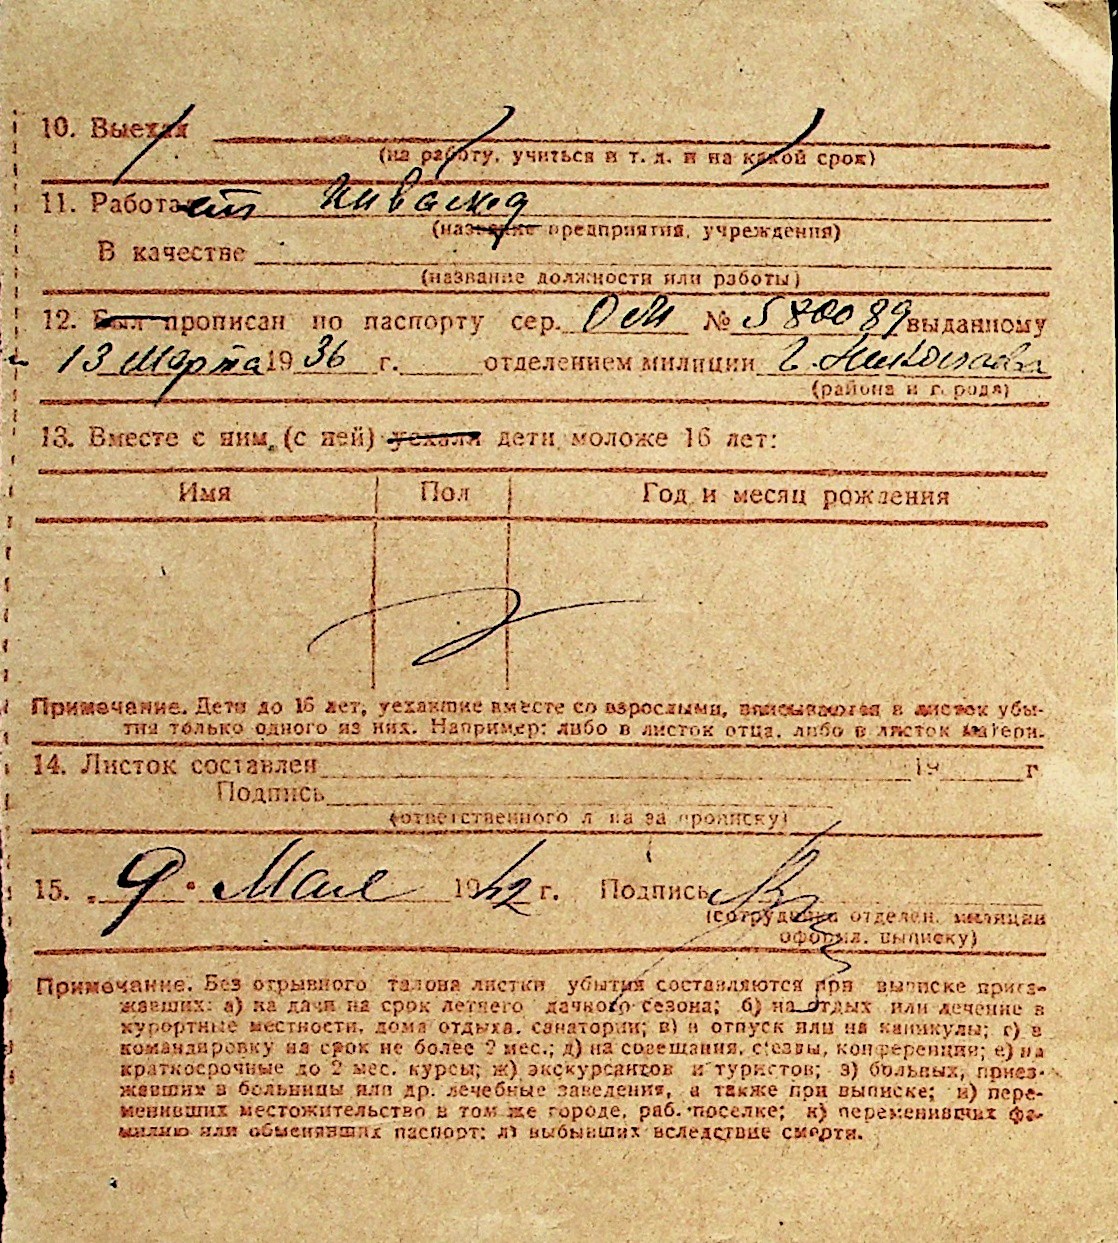 10. Выехал
(на работу, учиться и т. д. и на какой срок)
11. Работает Инвалид
(название предприятия, учреждения)
В качестве
(название должности или работы)
12. Был прописан по паспорту сер. ОМ № 580089 выданному
13 Марта 1936 г. отделением милиции г. Николаева
(района и города)
13. Вместе с ним, (с ней) уехали дети моложе 16 лет:
Имя Пол Год и месяц рождения
Примечание. Дети до 16 лет, уехавшие вместе со взрослыми, вписываются в листок убы-
тия только одного из них. Например: либо в листок отца, либо в листок матери.
14. Листок составлен 19 г
Подпись
(ответственного лица за прописку)
15. „9“ Мая 1942 г. Подпись
(сотрудника отделен. милиции
оформл. выписку)
Примечание. Без отрывного талона листки убытия составляются при выписке приез-
жавших: а) на дачи на срок летнего дачного сезона; б) на отдых или лечение в
курортные местности, дома отдыха, санатории; в) в отпуск или на каникулы; г) в
командировку на срок не более 2 мес.; д) на совещания, съезды, конференции; е) на
краткосрочные до 2 мес. курсы; ж) экскурсантов и туристов; з) больных, приез-
жавших в больницы или др. лечебные заведения, а также при выписке; и) пере-
менивших местожительство в том же городе, раб. поселке; к) переменивших фа-
милию или обменявших паспорт; л) выбывших вследствие смерти.